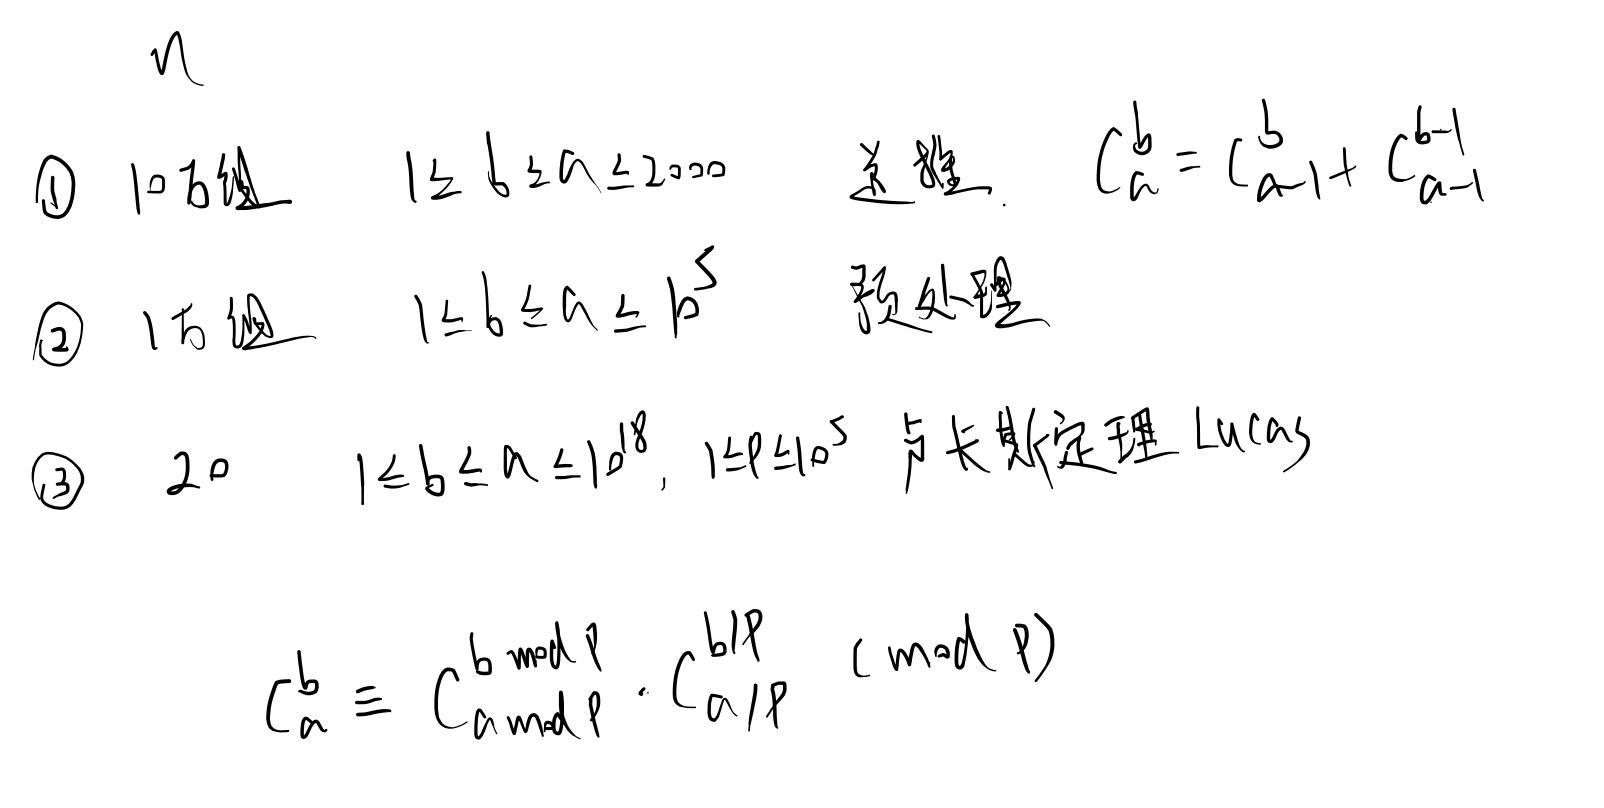 n
① 10万组 1≤b≤a≤2000 递推. C_a^b = C_{a-1}^b + C_{a-1}^{b-1}
② 1万组 1≤b≤a≤10^5 预处理
③ 20 1≤b≤a≤10^18, 1≤p≤10^5 卢卡斯定理 Lucas
C_a^b ≡ C_{a mod p}^{b mod p} · C_{a/p}^{b/p} (mod p)